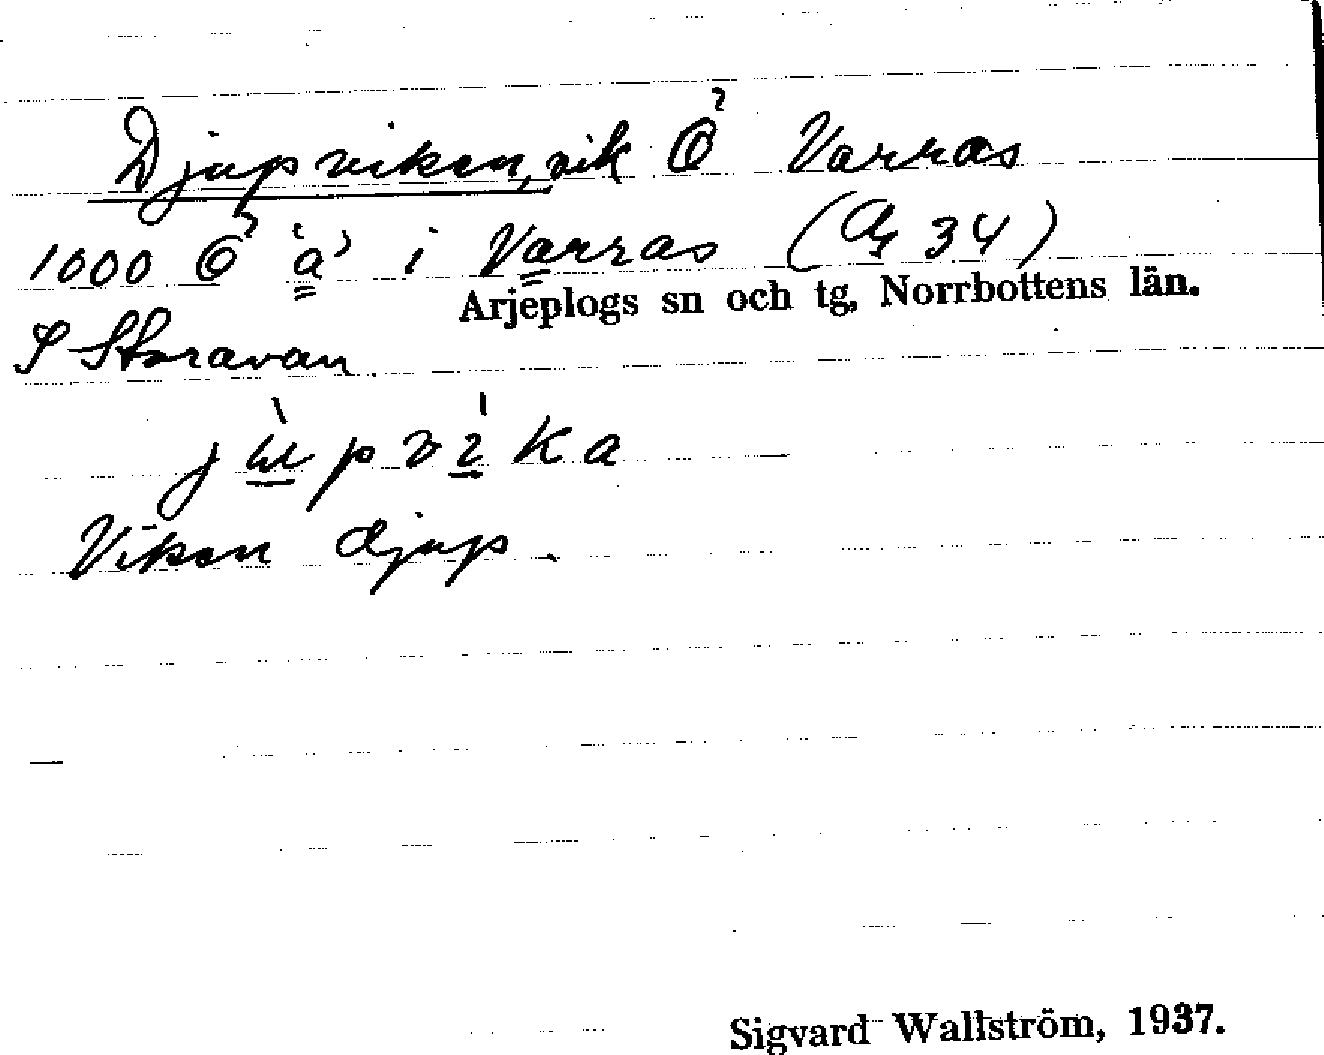 Djupviken, vik Ö Varras
1000 Ö 'a' i Varras (Aj 34)
Arjeplogs sn och tg, Norrbottens län.
I Storavan
jùpvíka
Viken djup.
Sigvard Wallström, 1937.